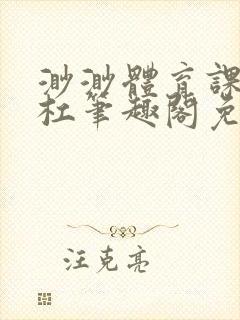 渺渺體育課
杜筆趣閣免
汪克亮